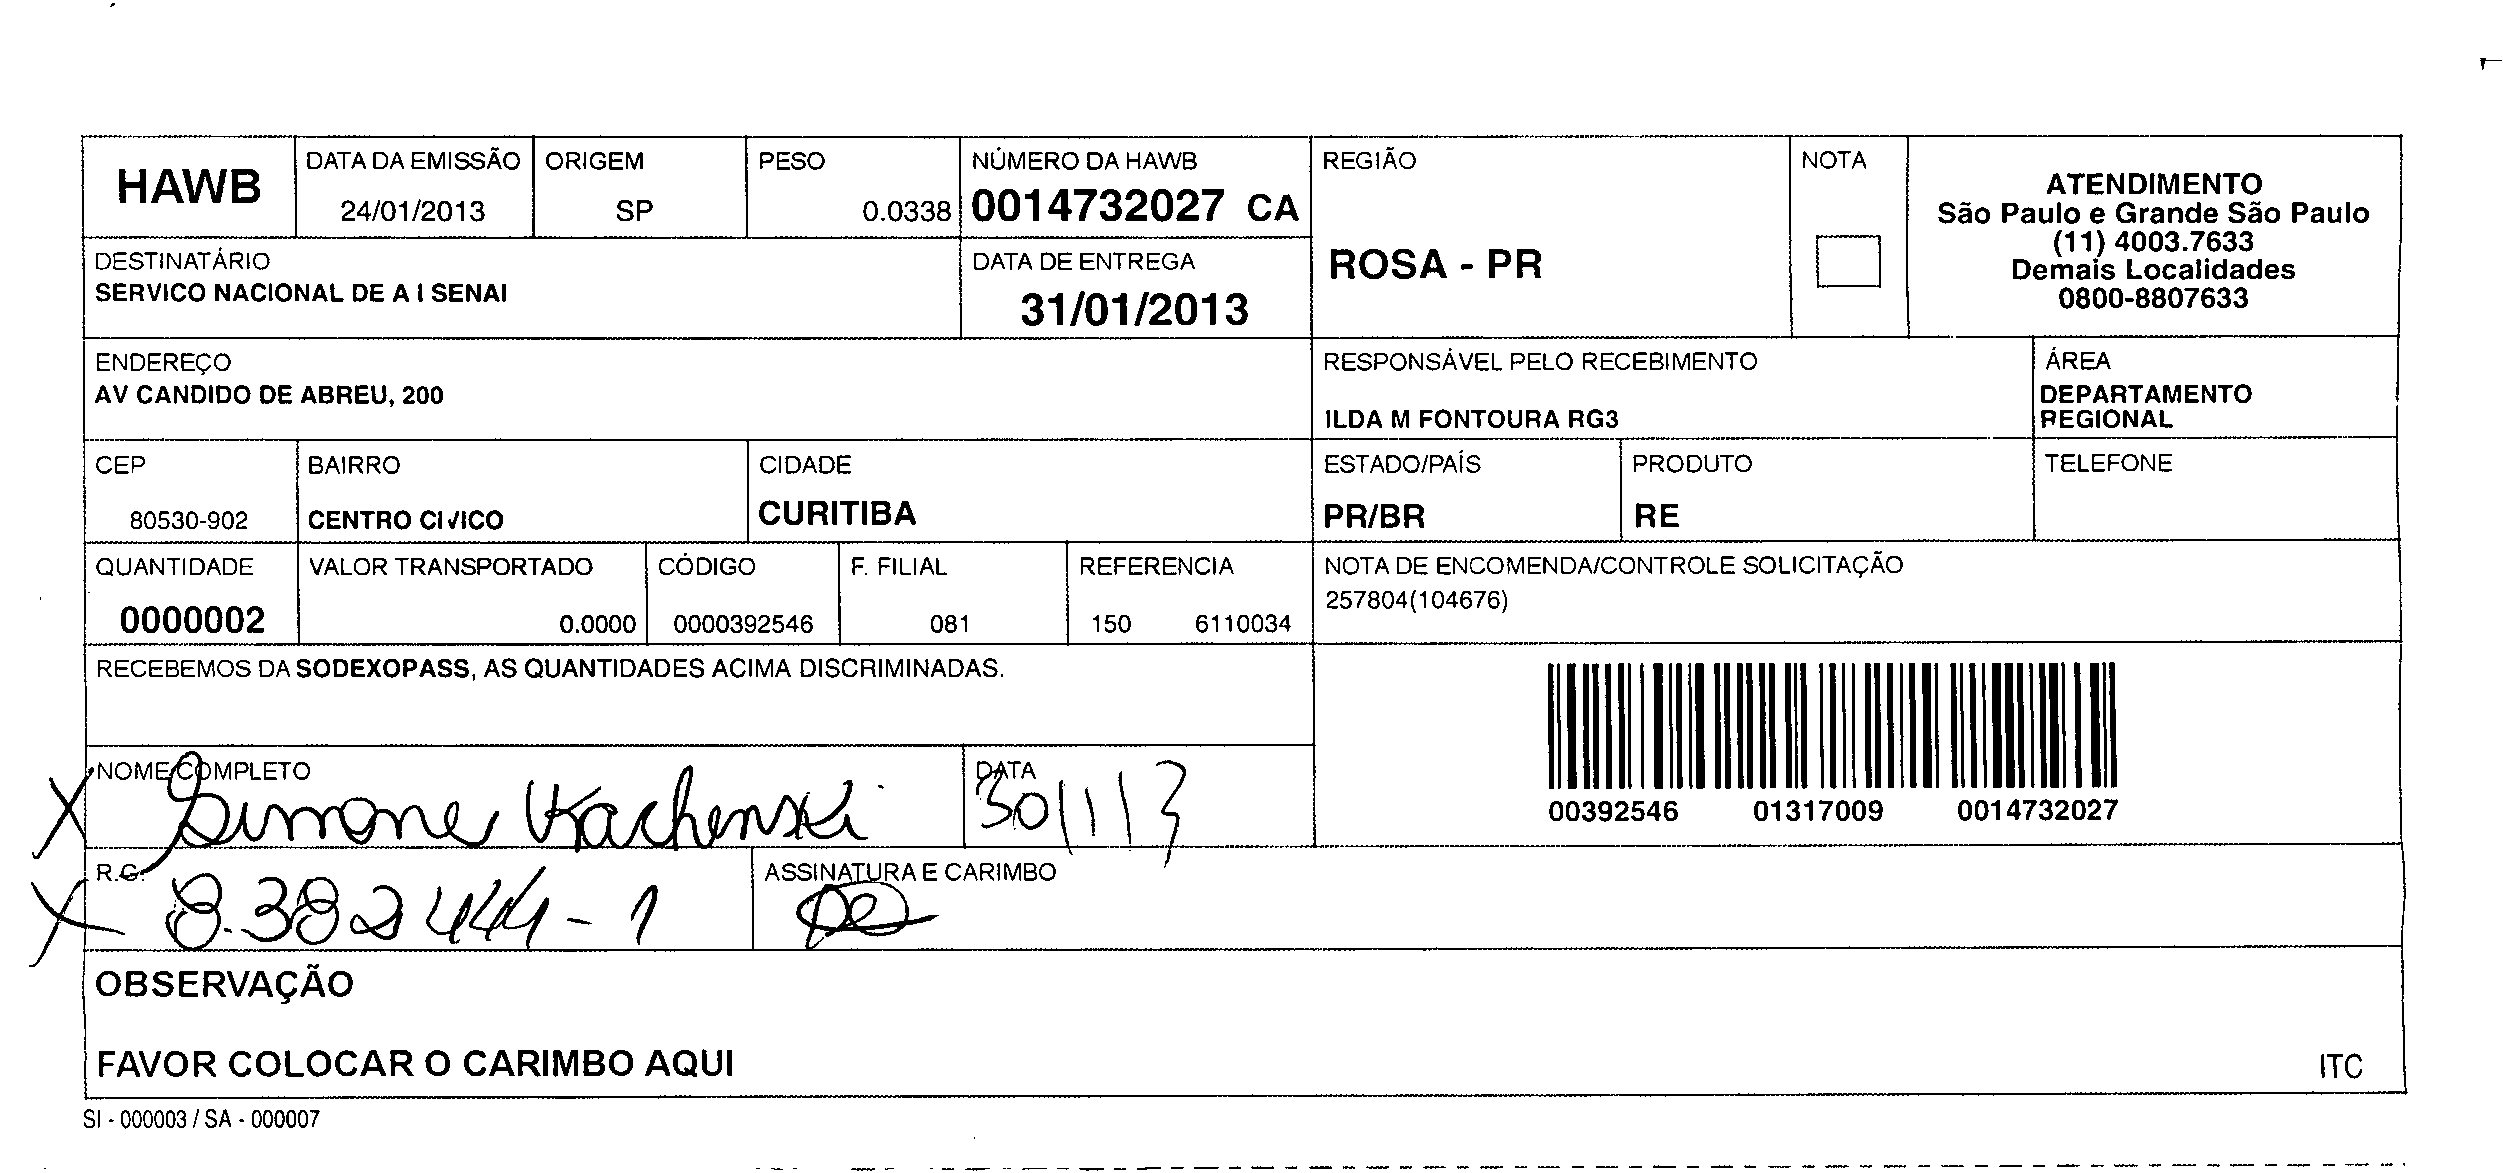 HAWB
DATA DA EMISSÃO
24/01/2013
ORIGEM
SP
PESO
0.0338
NÚMERO DA HAWB
0014732027 CA
REGIÃO
ROSA - PR
NOTA
ATENDIMENTO
São Paulo e Grande São Paulo
(11) 4003.7633
Demais Localidades
0800-8807633
DESTINATÁRIO
SERVICO NACIONAL DE A I SENAI
DATA DE ENTREGA
31/01/2013
ENDEREÇO
AV CANDIDO DE ABREU, 200
RESPONSÁVEL PELO RECEBIMENTO
ILDA M FONTOURA RG3
ÁREA
DEPARTAMENTO
REGIONAL
CEP
80530-902
BAIRRO
CENTRO CIVICO
CIDADE
CURITIBA
ESTADO/PAÍS
PR/BR
PRODUTO
RE
TELEFONE
QUANTIDADE
0000002
VALOR TRANSPORTADO
0.0000
CÓDIGO
0000392546
F. FILIAL
081
REFERENCIA
150 6110034
NOTA DE ENCOMENDA/CONTROLE SOLICITAÇÃO
257804(104676)
RECEBEMOS DA SODEXOPASS, AS QUANTIDADES ACIMA DISCRIMINADAS.
00392546 01317009 0014732027
X NOME COMPLETO
Simone Kachenski
DATA
30/1/13
X R.G:
8.382444-1
ASSINATURA E CARIMBO
OBSERVAÇÃO
FAVOR COLOCAR O CARIMBO AQUI
ITC
SI - 000003 / SA - 000007